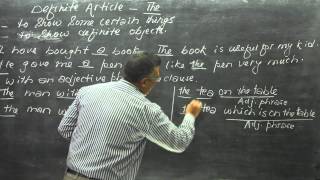 Definite Article - The
- to show some certain things
- to show definite object.
I have bought a book. The book is useful for my kid.
He gave me a pen. I like the pen very much.
with an adjective phrase clause.
The man wi the tea on the table
Adj. phrase
the man w the tea which is on the table
Adj. phrase